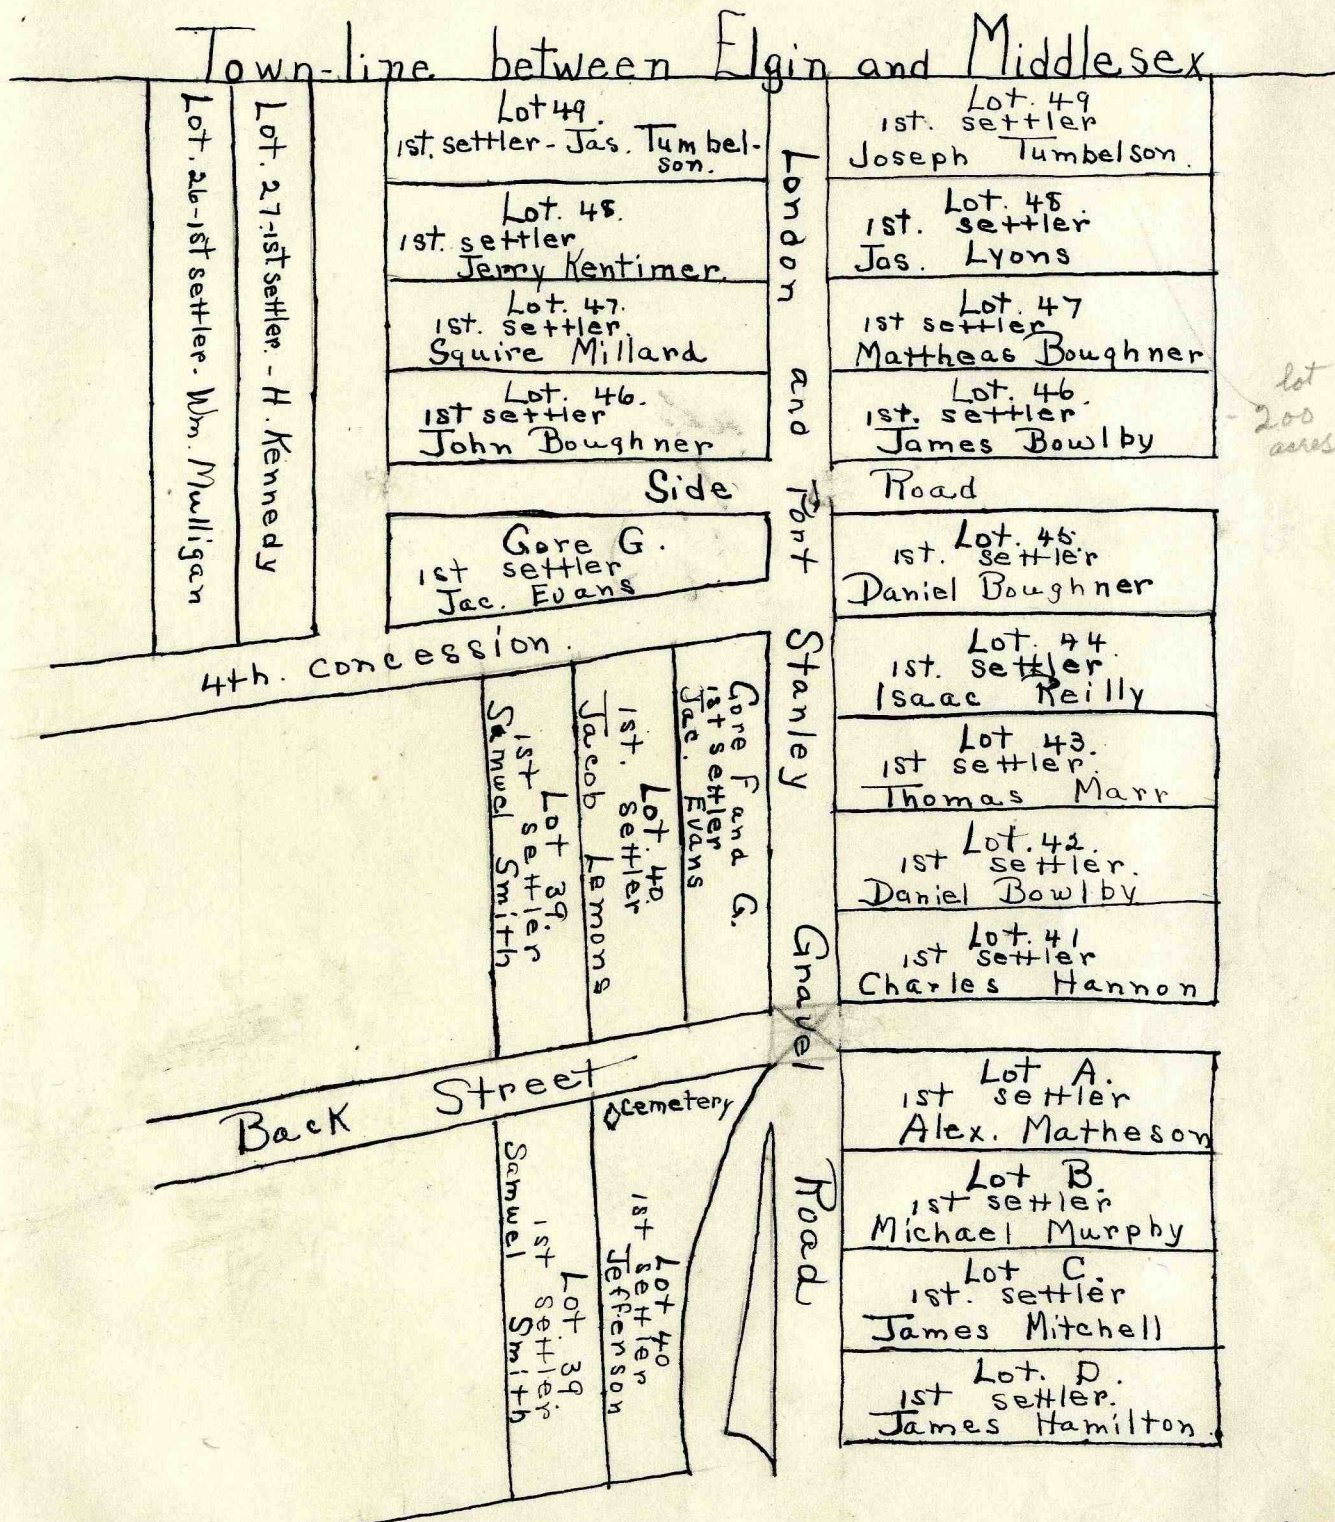 Town-line between Elgin and Middlesex
Lot. 26-1st settler. Wm. Mulligan
Lot. 27-1st settler. - H. Kennedy
Lot 49.
1st. settler - Jas. Tumbel-
son.
Lot. 48.
1st. settler
Jerry Kentimer.
Lot. 47.
1st. settler.
Squire Millard
Lot. 46.
1st settler
John Boughner
London and Port Stanley Gravel Road
Lot. 49
1st. settler
Joseph Tumbelson.
Lot. 48
1st. settler
Jas. Lyons
Lot. 47
1st settler
Mattheas Boughner
Lot. 46.
1st. settler
James Bowlby
lot
200
acres
Side Road
Gore G.
1st settler
Jac. Evans
Lot. 45.
1st. settler
Daniel Boughner
Lot. 44
1st. settler
Isaac Reilly
Lot 43.
1st settler.
Thomas Marr
Lot. 42.
1st settler.
Daniel Bowlby
Lot. 41
1st settler
Charles Hannon
4th. concession.
Gore F and G.
1st settler
Jac. Evans
Lot. 40.
1st. settler
Jacob Lemons
Lot 39.
1st settler
Samuel Smith
Back Street
cemetery
Lot 40
1st settler
Jefferson
Lot. 39
1st settler.
Samuel Smith
Lot A.
1st settler
Alex. Matheson
Lot B.
1st settler
Michael Murphy
Lot C.
1st. settler
James Mitchell
Lot. D.
1st settler.
James Hamilton.